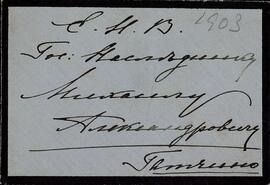 Е. И. В. 1903
Гос: Наследнику
Михаилу
Александровичу
Гатчино